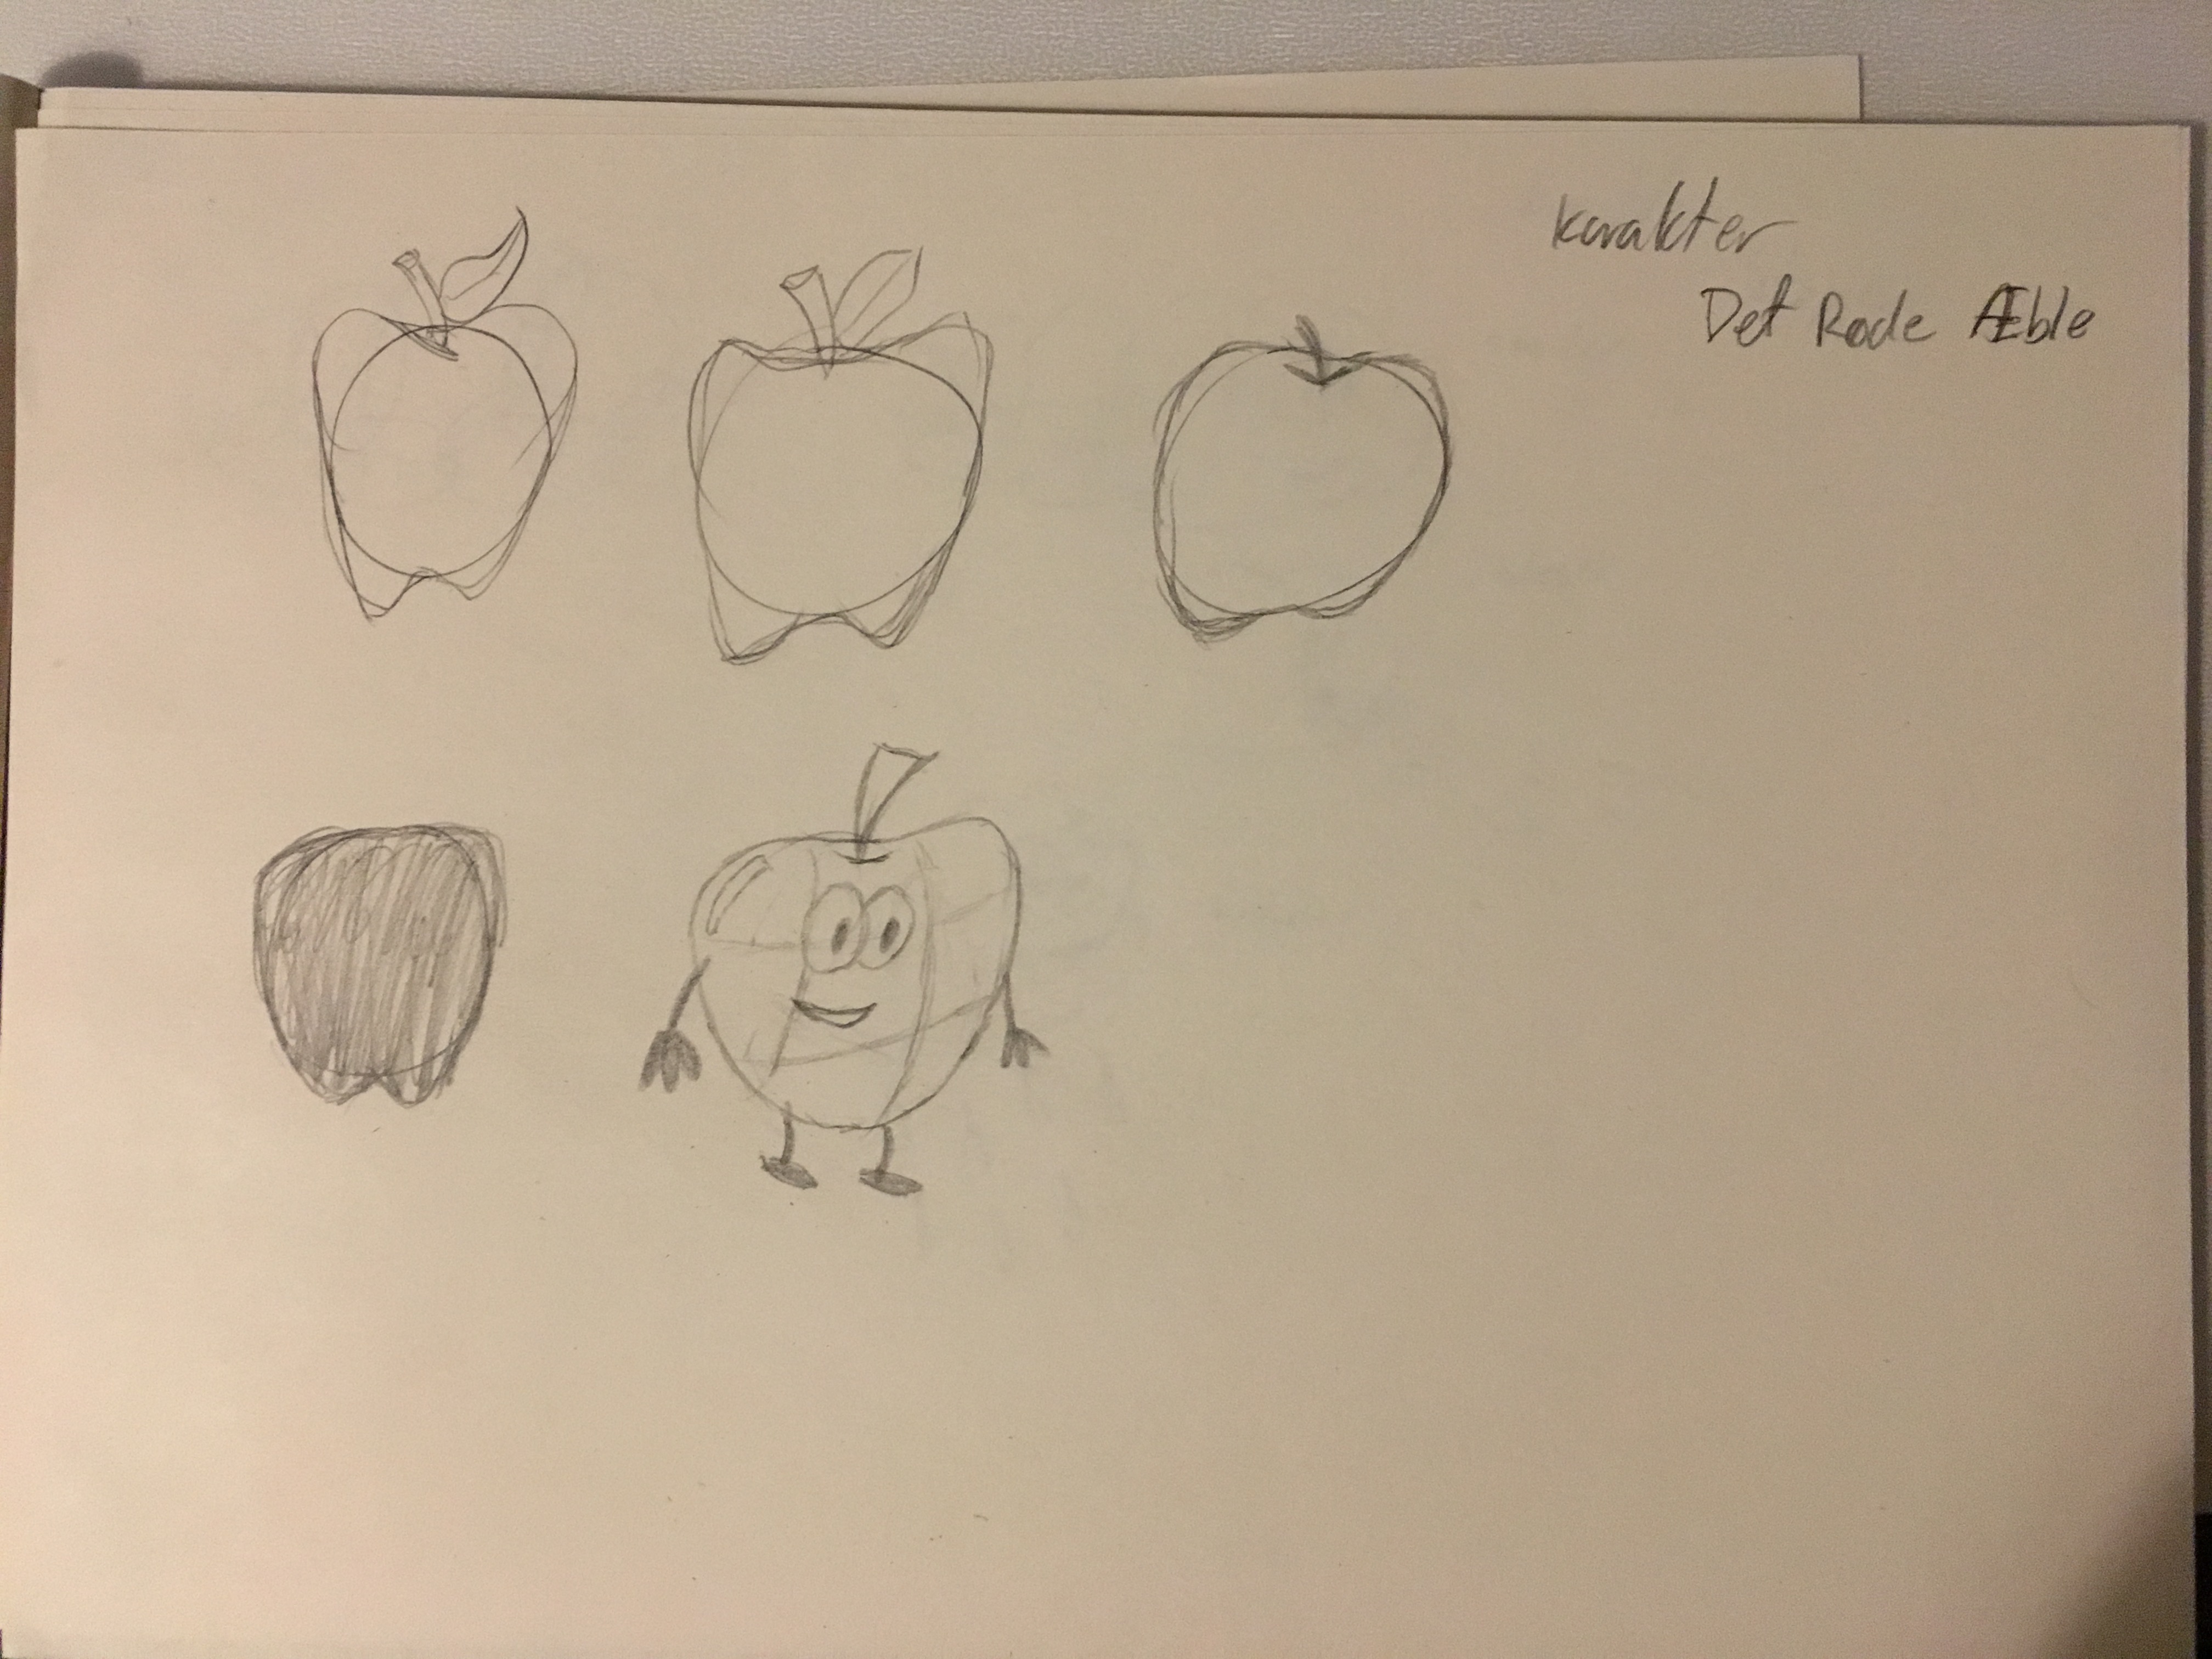 karakter
Det Røde Æble